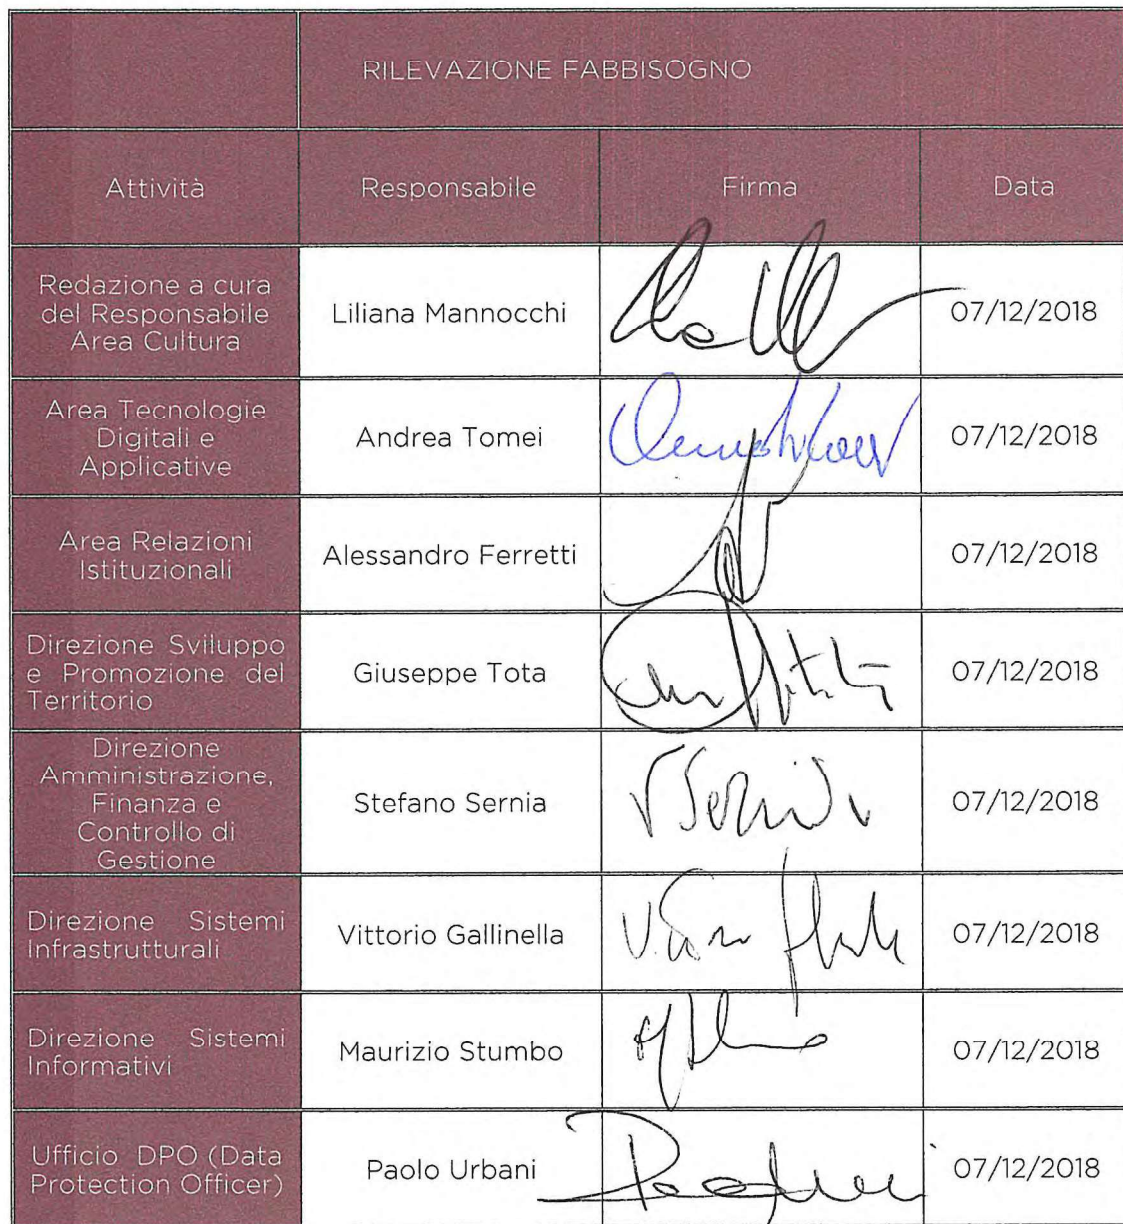 RILEVAZIONE FABBISOGNO
Attività Responsabile Firma Data
Redazione a cura
del Responsabile
Area Cultura
Liliana Mannocchi
07/12/2018
Area Tecnologie
Digitali e
Applicative
Andrea Tomei
07/12/2018
Area Relazioni
Istituzionali
Alessandro Ferretti
07/12/2018
Direzione Sviluppo
e Promozione del
Territorio
Giuseppe Tota
07/12/2018
Direzione
Amministrazione,
Finanza e
Controllo di
Gestione
Stefano Sernia
07/12/2018
Direzione Sistemi
Infrastrutturali
Vittorio Gallinella
07/12/2018
Direzione Sistemi
Informativi
Maurizio Stumbo
07/12/2018
Ufficio DPO (Data
Protection Officer)
Paolo Urbani
07/12/2018